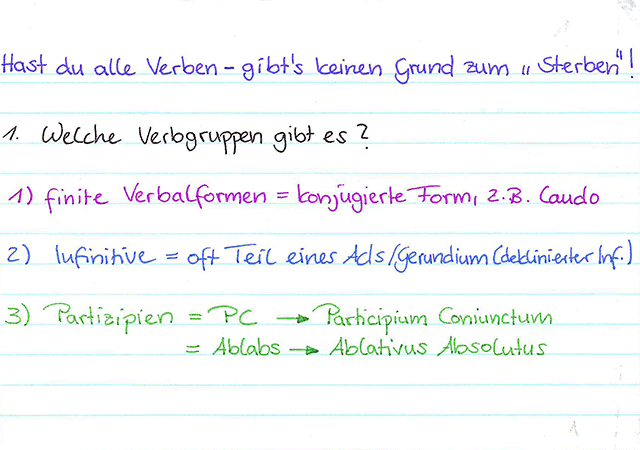 Hast du alle Verben - gibt's keinen Grund zum „Sterben"!
1. Welche Verbgruppen gibt es?
1) finite Verbalformen = konjugierte Form, z.B. Laudo
2) Infinitive = oft Teil eines AcIs/Gerundium (deklinierter Inf.)
3) Partizipien = PC → Participium Coniunctum
= Ablabs → Ablativus Absolutus
1